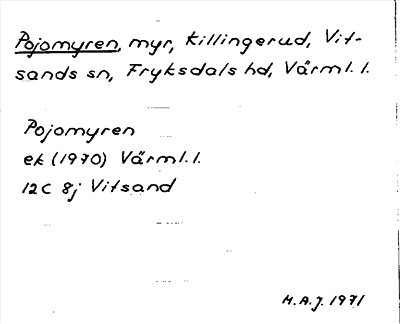 Pojomyren, myr, Killingerud, Vit-
sands sn, Fryksdals hd, Värml. l.
Pojomyren
ek (1970) Värml. l.
12C 8j Vitsand
H.A.J. 1971